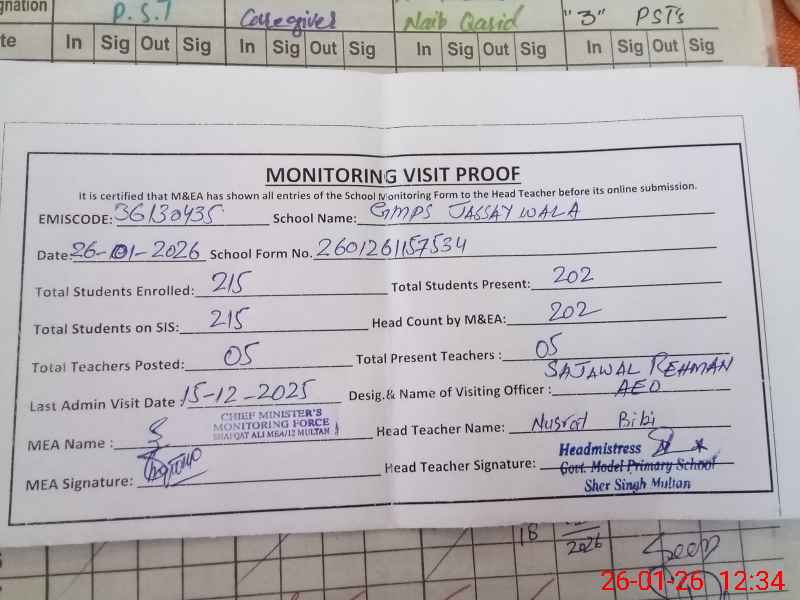 gnation P.S.T Caregiver Naib Qasid "3" PSTs
te In Sig Out Sig In Sig Out Sig In Sig Out Sig In Sig Out Sig
MONITORING VISIT PROOF
It is certified that M&EA has shown all entries of the School Monitoring Form to the Head Teacher before its online submission.
EMISCODE: 36130435 School Name: GMPS JASSAY WALA
Date: 26-01-2026 School Form No. 2601261157534
Total Students Enrolled: 215 Total Students Present: 202
Total Students on SIS: 215 Head Count by M&EA: 202
Total Teachers Posted: 05 Total Present Teachers : 05
SAJAWAL REHMAN
Last Admin Visit Date : 15-12-2025 Desig.& Name of Visiting Officer : AEO
CHIEF MINISTER'S
MONITORING FORCE
SHAFQAT ALI MEA/12 MULTAN
MEA Name : Head Teacher Name: Nusrat Bibi
MEA Signature: Head Teacher Signature:
Headmistress
Govt. Model Primary School
Sher Singh Multan
18
2026
26-01-26 12:34